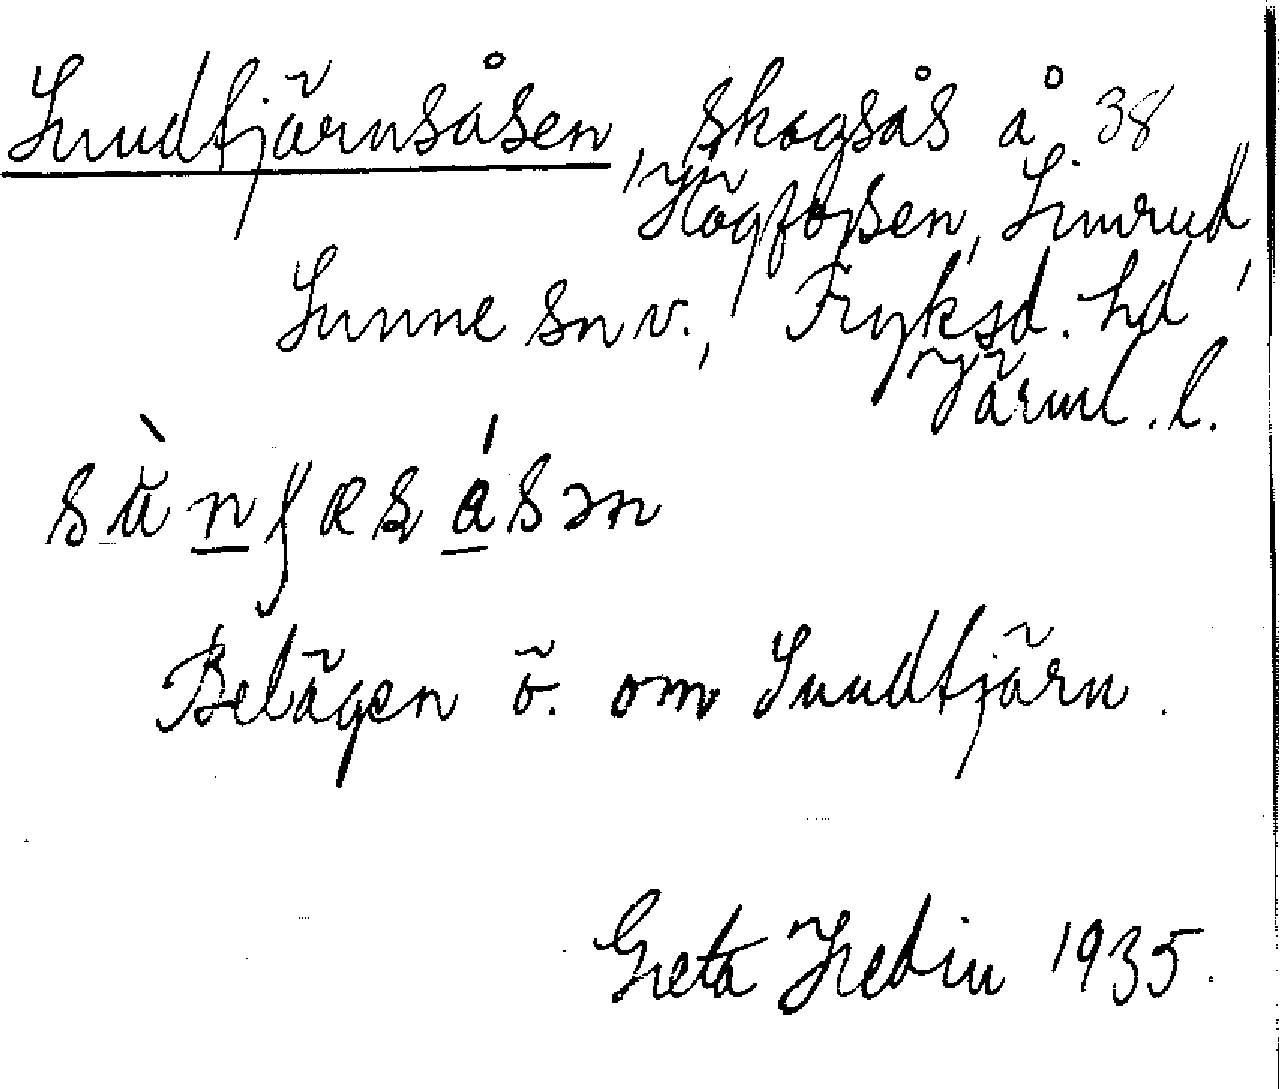 Sundtjärnsåsen, skogsås å 38
Högfossen, Simrud,
Sunne sn v., Fryksd. hd,
Värml. l.
Belägen ö. om Sundtjärn.
Greta Hedin 1935.